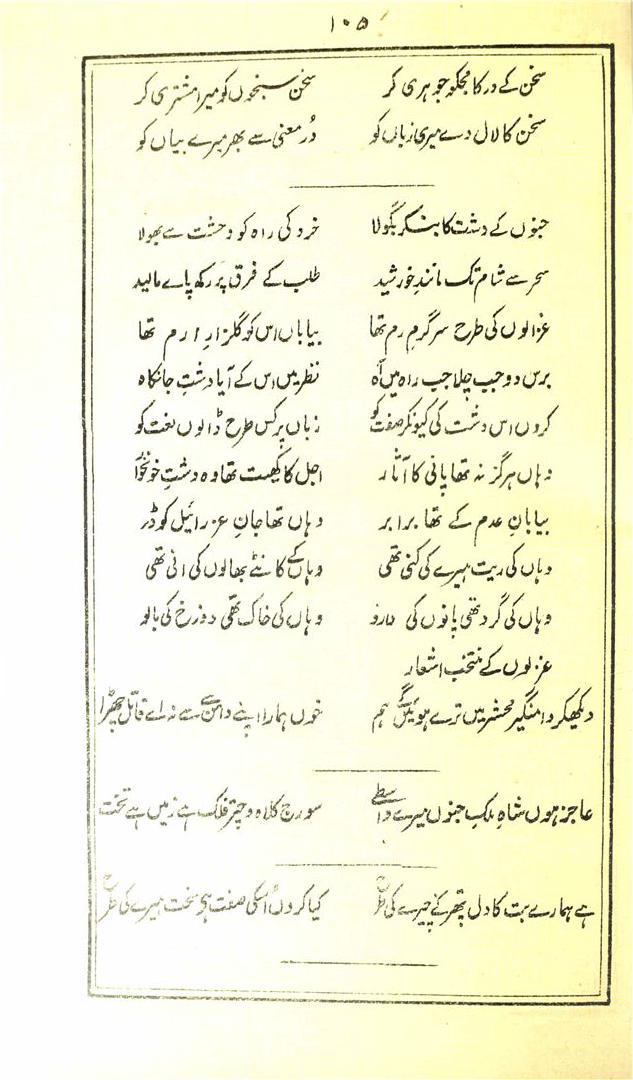 ۱۰۵
سخن کے در کا مجکو جوہری کر سخن سنجوں کو میرا مشتری کر
سخن کا لال دے میری زباں کو دُر معنی سے بھر میرے بیاں کو
جنوں کے دشت کا بنکر بگولا خرد کی راہ کو وحشت سے بھولا
سحر سے شام تک مانندِ خورشید طلب کے فرق پر رکھ پاے مالید
غزالوں کی طرح سرگرمِ رم تھا بیاباں اس کو گلزارِ ارم تھا
برس دو جب چلا جب راہ میں آہ نظر میں اس کے آیا دشتِ جانکاہ
کروں اس دشت کی کیونکر صفت کو زباں پر کس طرح ڈالوں لغت کو
وہاں ہرگز نہ تھا پانی کا آثار اجل کا کھیت تھا وہ دشتِ خونخوار
بیابانِ عدم کے تھا برابر وہاں تھا جانِ عزرائیل کو ڈر
وہاں کی ریت ہیرے کی کنی تھی وہاں کے کانٹے بھالوں کی انی تھی
وہاں کی گرد تھی پانوں کی دارو وہاں کی خاک تھی دوزخ کی بالو
غزلوں کے منتخب اشعار
دکھیکر دامنگیر محشر میں ترے ہوئیں گے ہم خوں ہمارا اپنے دامن سے نہ اے قاتل چھڑا
عاجز ہوں شاہِ ملکِ جنوں میرے واسطے سورج کلاہ و چترِ فلک ہے زمیں ہے تخت
ہے ہمارے بت کا دل پتھر کے چیرے کی طرح کیا کروں اسکی صفت ہے سخت ہیرے کی طرح